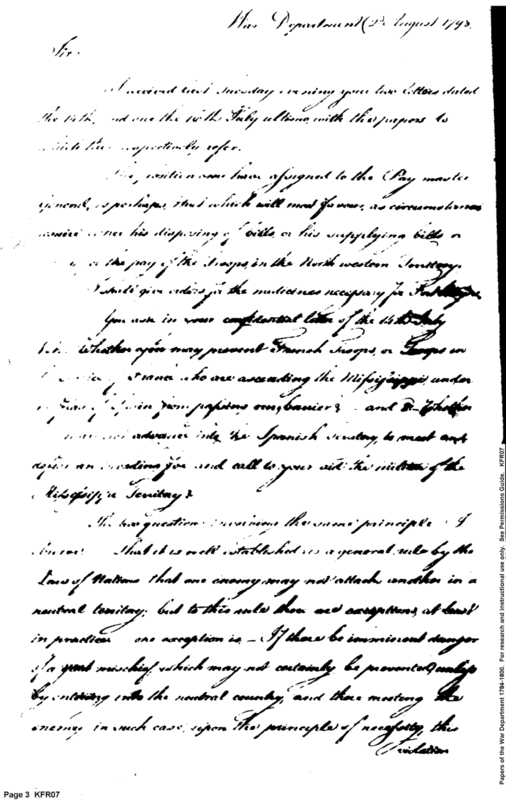 War Department 2d August 1798.
Sir.
received last Tuesday evening your two letters dated
the 14th, and one the 10th July ultimo, with the papers to
which they respectively refer.
have assigned to the Pay master
general, is perhaps, that which will most favour, as circumstances
his disposing of bills, or his supplying bills or
the pay of the Troops, in the North western Territory.
I shall give orders for the medicines necessary for
You ask in your confidential letter of the 14th July
Whether you may prevent French Troops, or Troops in
of France who are ascending the Mississippi, under
of Spain from passing our barrier? and 2. Whether
advance into the Spanish territory, to meet and
an invading foe and call to your aid the militia of the
Mississippi Territory?
The two questions the same principle. I
That it is well established as a general rule by the
Laws of Nations that one enemy may not attack another in a
neutral territory; but to this rule there are exceptions, at least
in practice one exception is – If there be imminent danger
of a great mischief, which may not certainly be prevented, unless
by entering into the neutral country, and there meeting the
enemy in such case, upon the principle of necessity, this
Violation
Page 3 KFR07
Papers of the War Department 1784-1800. For research and instructional use only. See Permissions Guide. KFR07